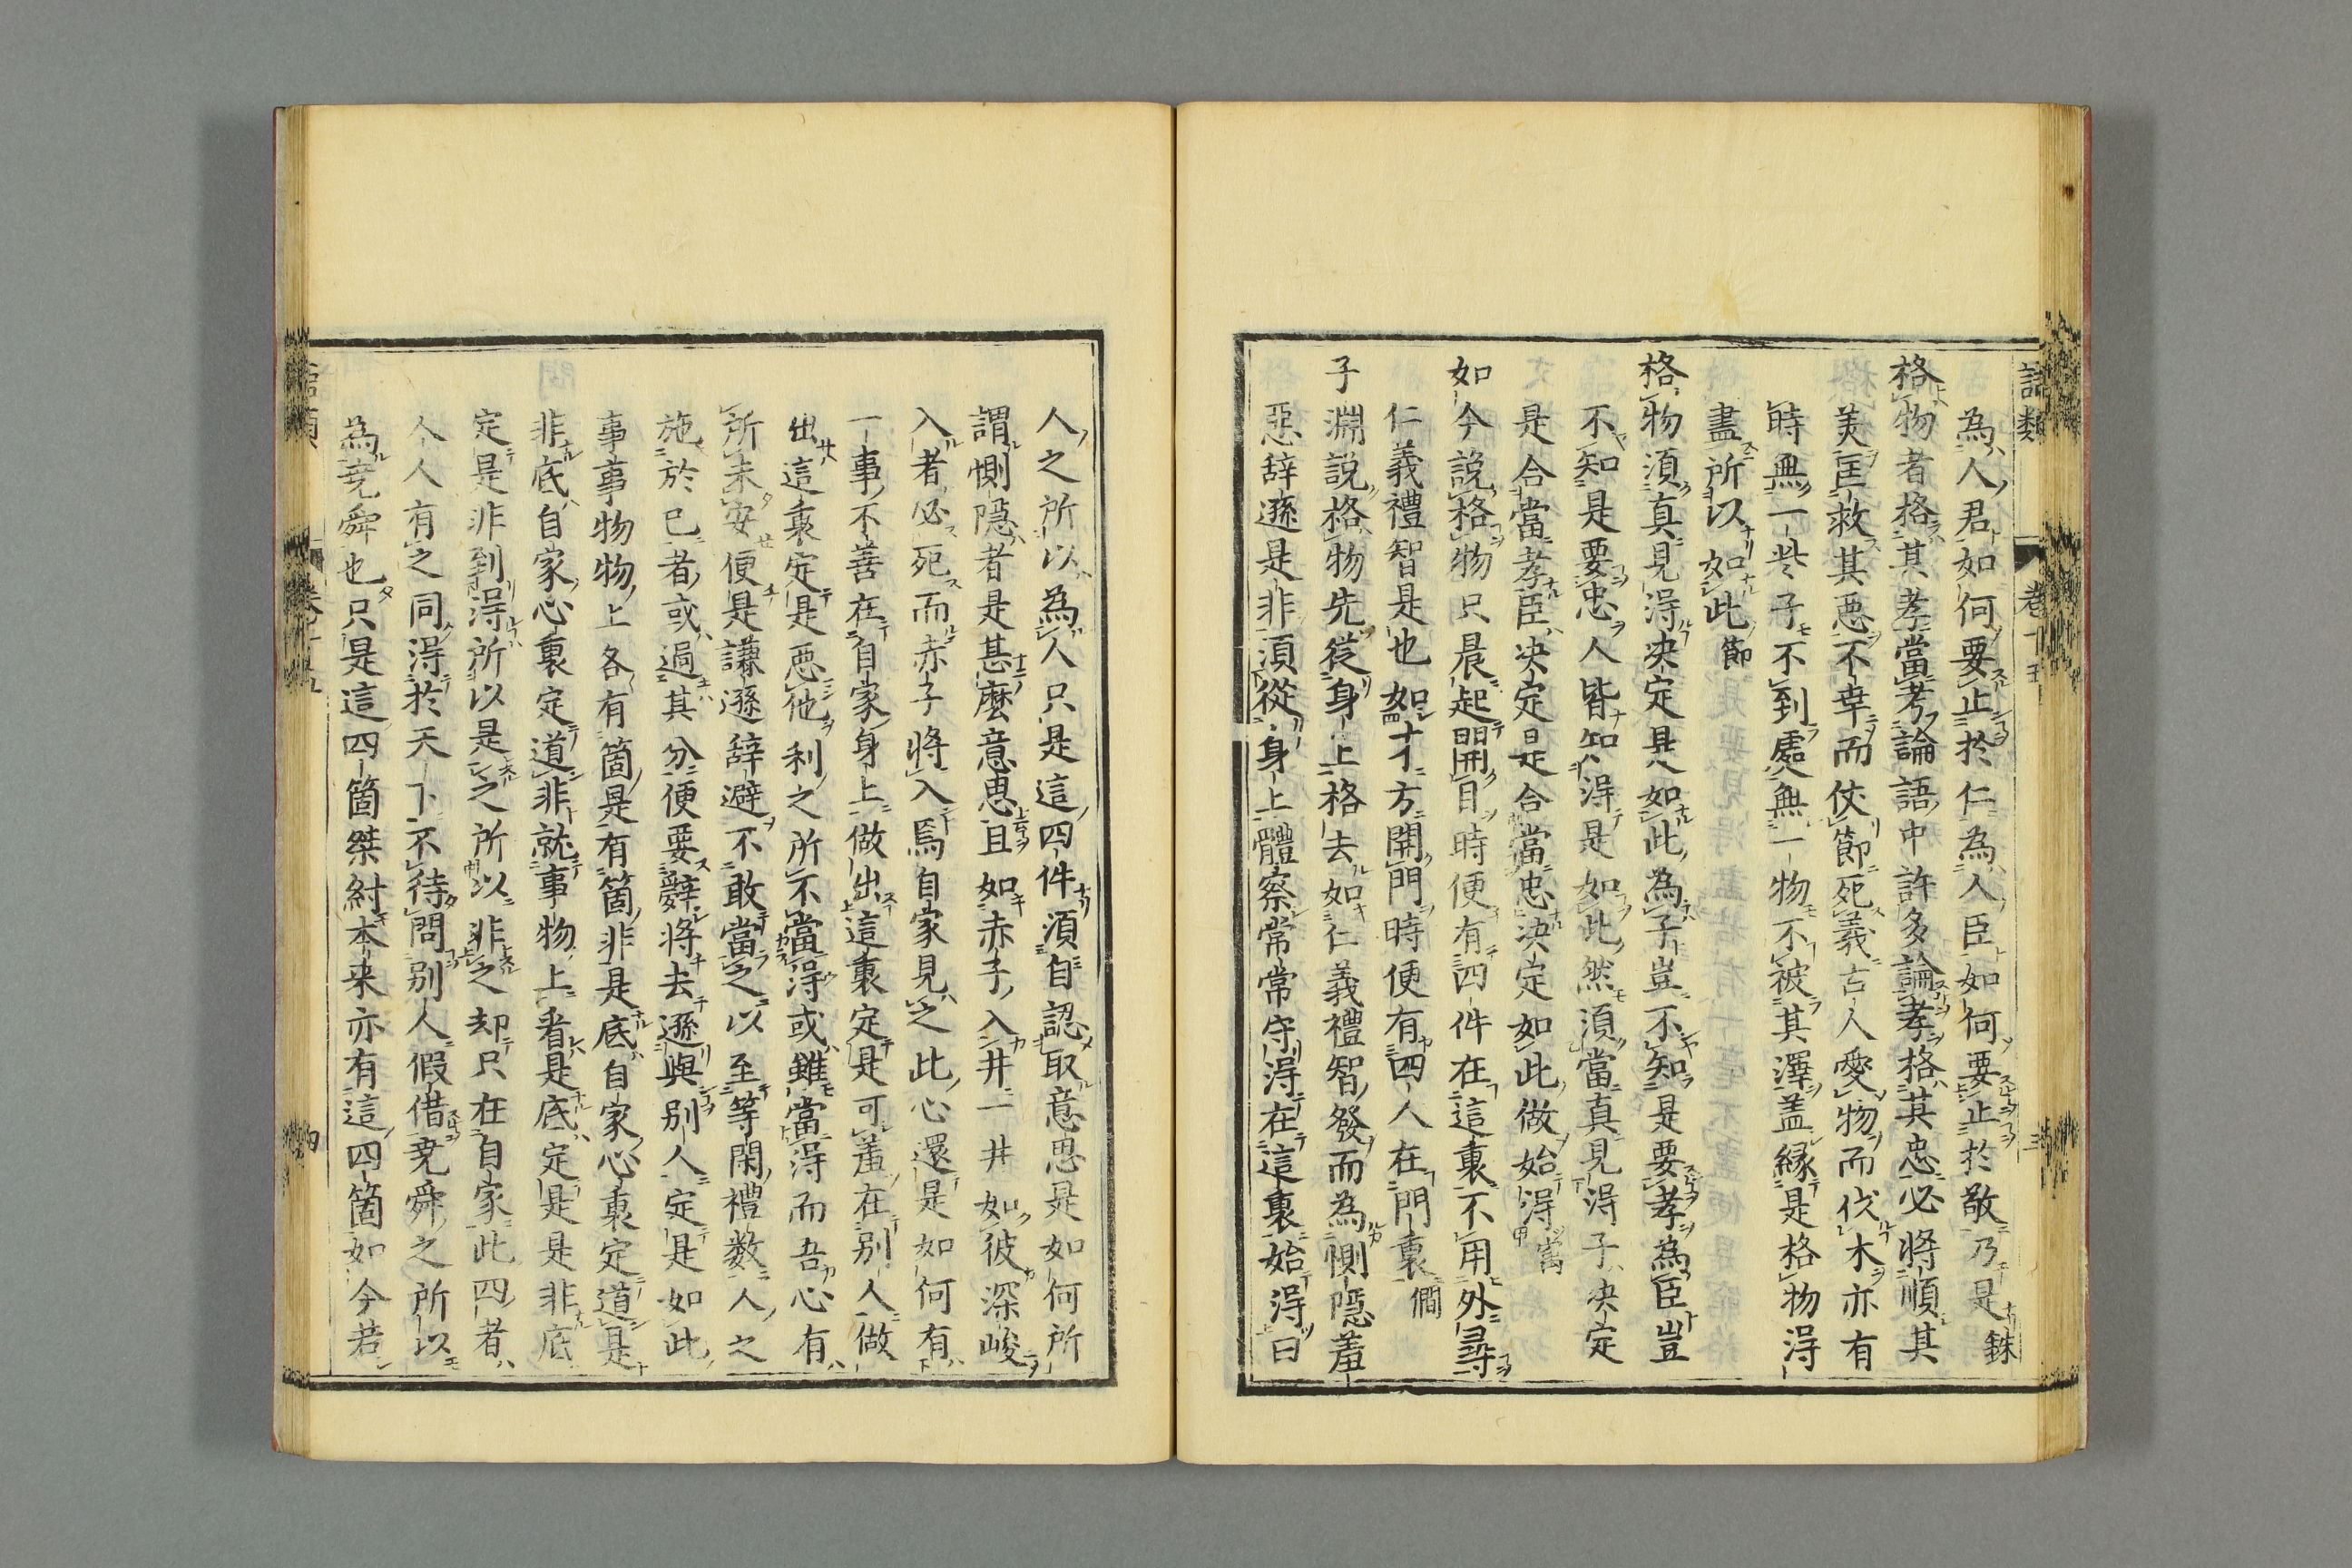 語類 卷十五 三
為人君如何要止於仁為人臣如何要止於敬乃是銖
格物者格其孝當考論語中許多論孝格其忠必將順其
美匡救其惡不幸而仗節死義古人愛物而伐木亦有
時無一些子不到處無一物不被其澤盖縁是格物得
盡所以如此節
格物須真見得决定是如此為子豈不知是要孝為臣豈
不知是要忠人皆知得是如此然須當真見得子决定
是合當孝臣决定是合當忠决定如此做始得㝢
如今說格物只晨起開目時便有四件在這裏不用外尋
仁義禮智是也如才方開門時便有四人在門裏僩
子淵說格物先從身上格去如仁義禮智發而為惻隱羞
惡辭遜是非須從身上體察常常守得在這裏始得曰
人之所以為人只是這四件須自認取意思是如何所
謂惻隱者是甚麼意思且如赤子入井一井如彼深峻
入者必死而赤子將入焉自家見之此心還是如何有
一事不善在自家身上做出這裏定是可羞在别人做
出這裏定是惡他利之所不當得或雖當得而吾心有
所未安便是謙遜辭避不敢當之以至等閑禮数人之
施於己者或過其分便要辭將去遜與别人定是如此
事事物物上各有箇是有箇非是底自家心裏定道是
非底自家心裏定道非就事物上看是底定是是非底
定是非到得所以是之所以非之却只在自家此四者
人人有之同得於天下不待問别人假借堯舜之所以
為堯舜也只是這四箇桀紂本来亦有這四箇如今若